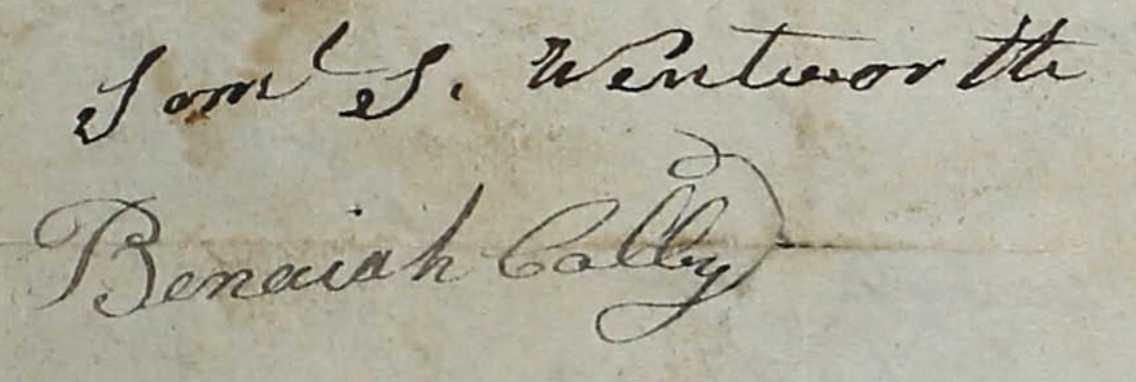 Saml S. Wentworth
Benaiah Colby